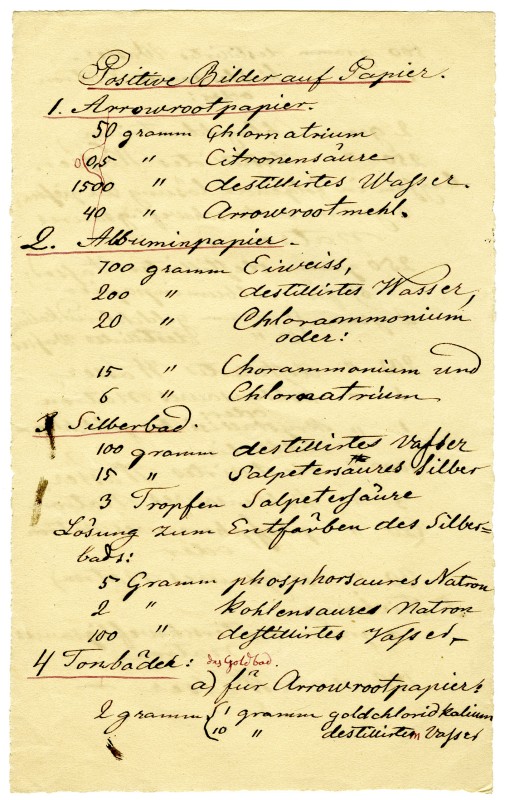 Positive Bilder auf Papier.
1. Arrowrootpapier.
50 gramm Chlornatrium
0,5 " Citronensäure
1500 " destillirtes Wasser.
40 " Arrowrootmehl.
2. Albuminpapier.
700 gramm Eiweiss,
200 " destillirtes Wasser,
20 " Chlorammonium
oder:
15 " Chorammonium und
6 " Chlornatrium
3 Silberbad.
100 gramm destillirtes Wasser
15 " Salpetersaures Silber
3 Tropfen Salpetersäure
Lösung zum Entfärben des Silber=
bads:
5 Gramm phosphorsaures Natron
2 " kohlensaures Natron
100 " destillirtes Wasser,
4 Tonbäder: das Goldbad.
a) für Arrowrootpapier:
2 gramm { 1 gramm goldchloridkalium
10 " destillirtem Wasser